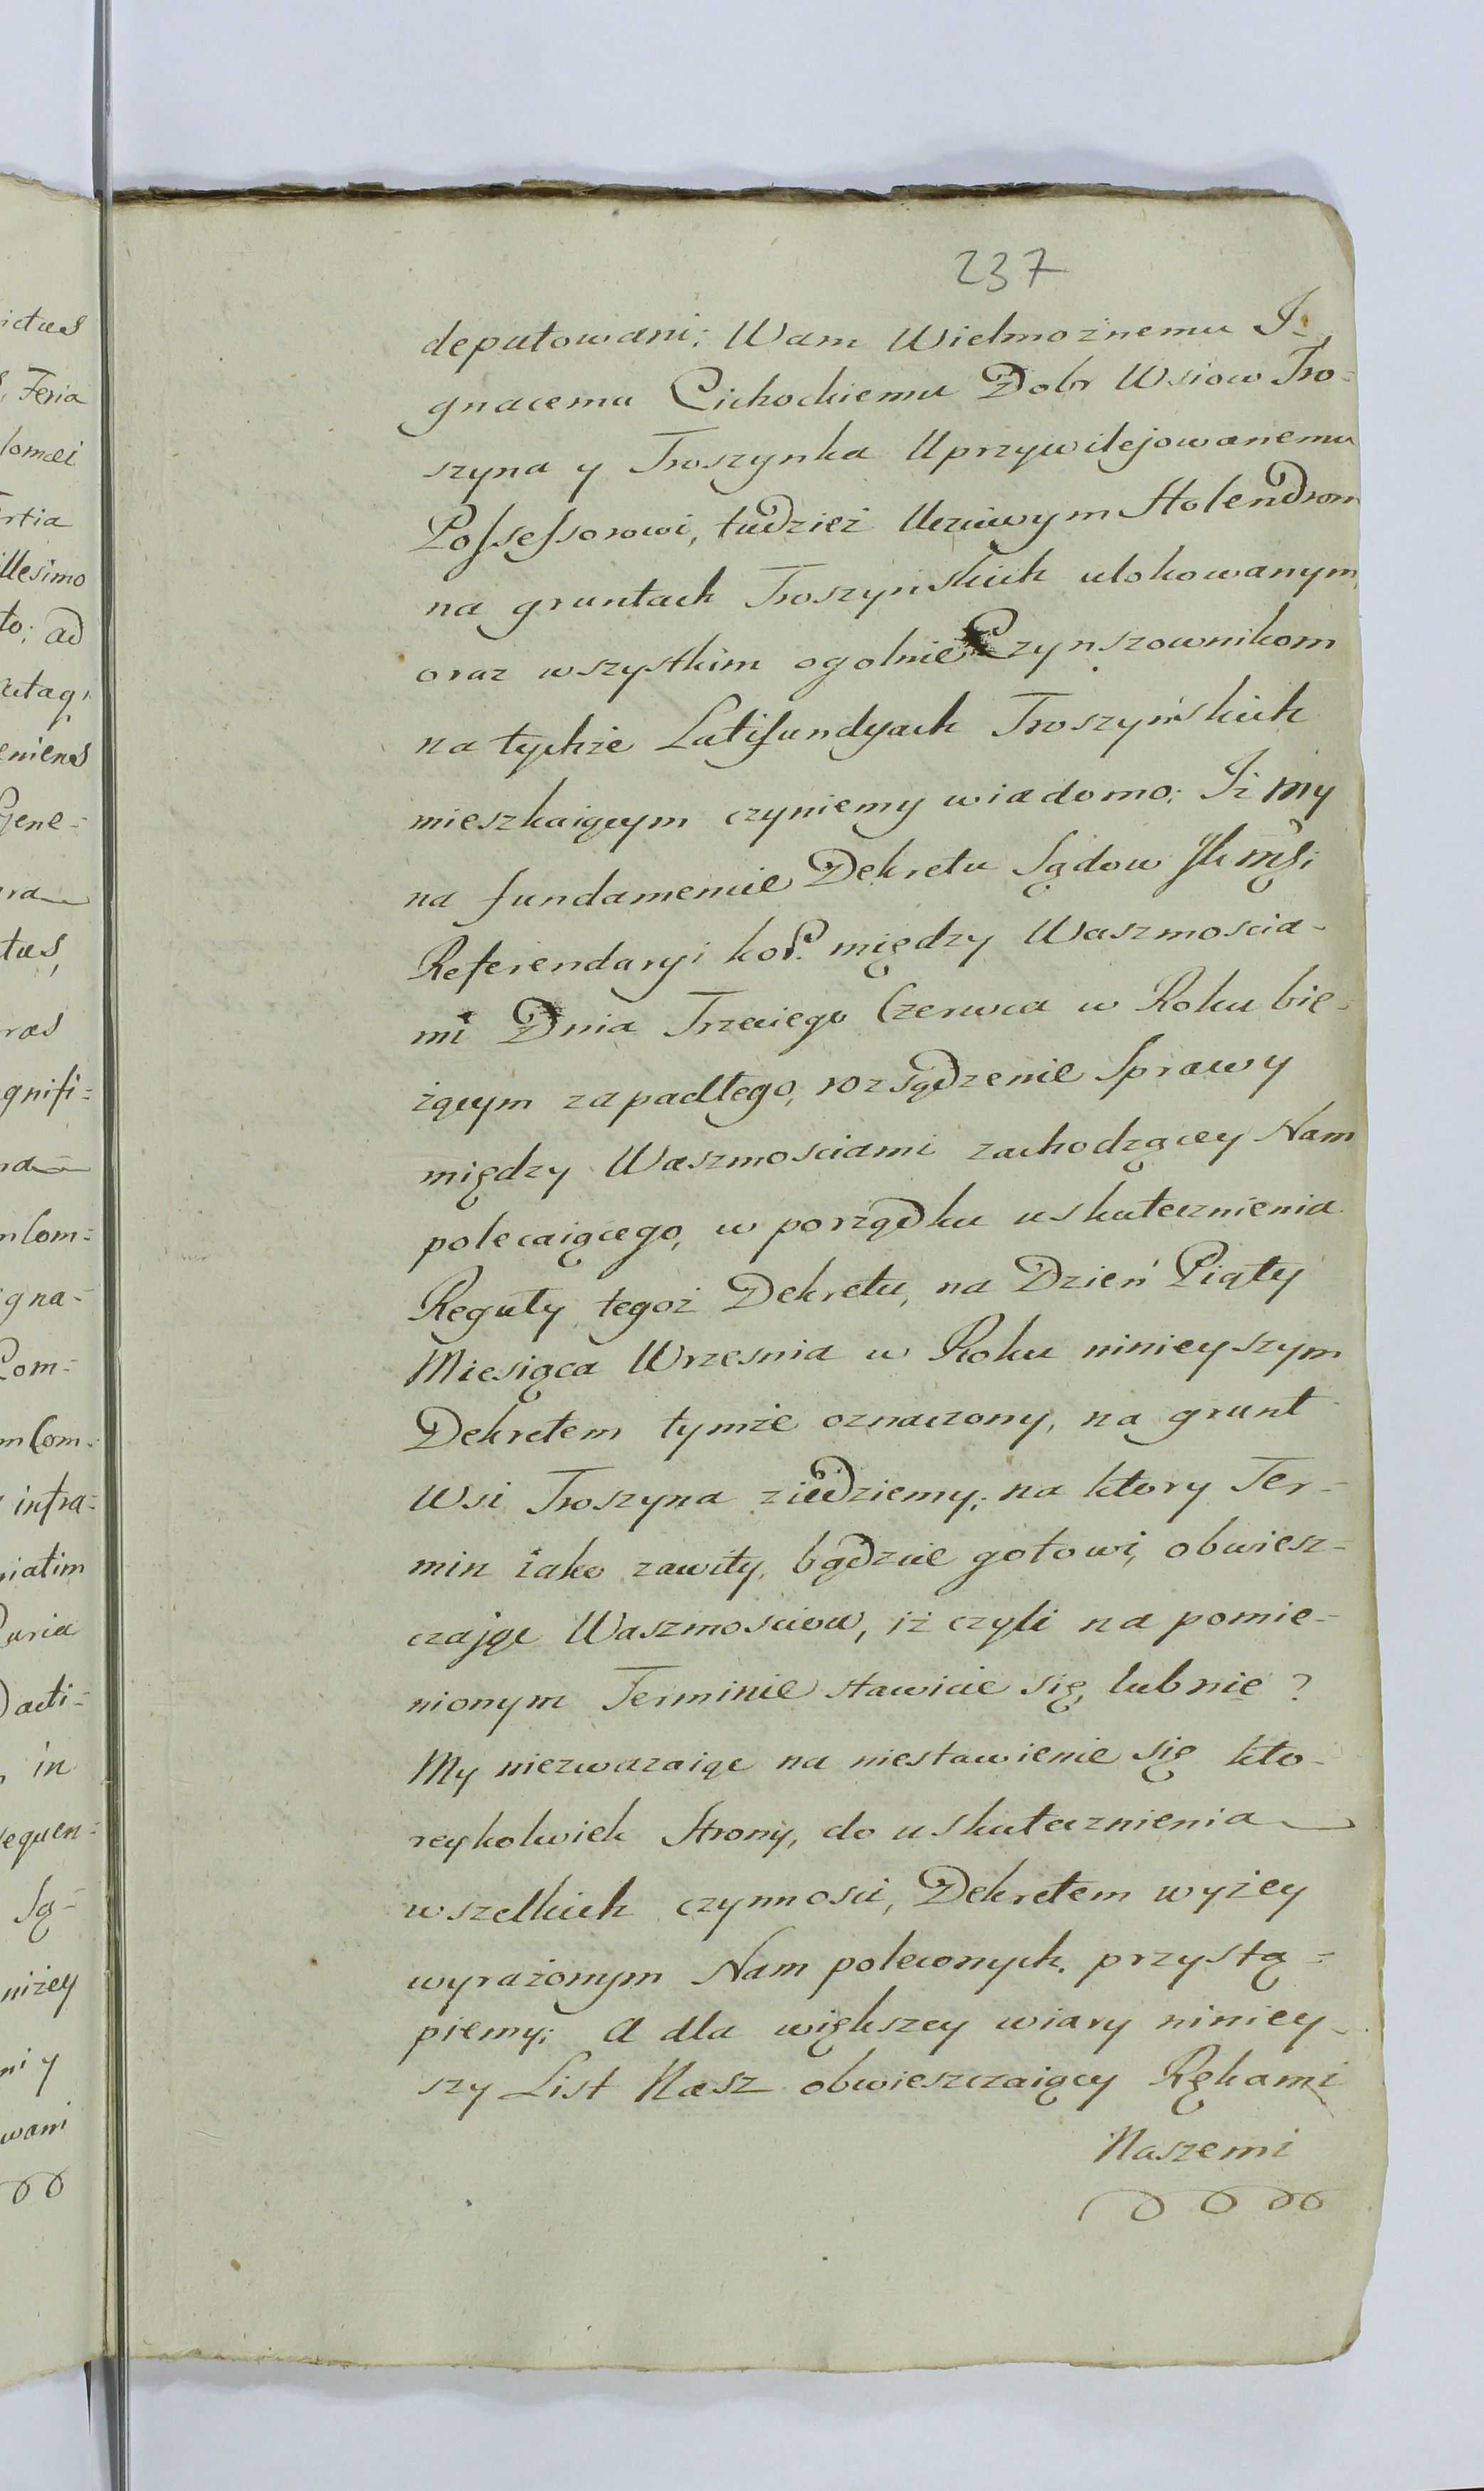 237
deputowani; Wam Wielmożnemu I-
gnacemu Cichockiemu Dobr Wsiow Tro-
szyna y Troszynka Uprzywilejowanemu
Possessorowi, tudzież Uczciwym Holendrom
na gruntach Troszynskich ulokowanym,
oraz wszystkim ogolnie Czynszownikom
na tychże Latifundyach Troszyńskich
mieszkaiącym czyniemy wiadomo; Iż my
na fundamencie Dekretu Sądow
Referendaryi kor. między Waszmoscia-
mi Dnia Trzeciego Czerwca w Roku bie-
żącym zapadłego, rozsądzenie Sprawy
między Waszmosciami zachodzącey Nam
polecaiącego, w porządku uskutecznienia
Reguły tegoż Dekretu, na Dzień Piąty
Miesiąca Wrzesnia w Roku ninieyszym
Dekretem tymże oznaczony, na grunt
Wsi Troszyna ziedziemy; na ktory Ter-
min iako zawity, bądzcie gotowi, obwiesz-
czając Waszmosciow, iż czyli na pomie-
nionym Terminie stawicie się, lub nie?
My niezwazaiąc na niestawienie się kto-
reykolwiek Strony, do uskutecznienia
wszelkich czynnosci, Dekretem wyżey
wyrażonym Nam poleconych, przystą-
piemy; A dla większey wiary niniey-
szy List Nasz obwieszczaiący Rękami
Naszemi
ictus
Feria
lomæi
rtia
illesimo
to; ad
eniens
Gene-
tus,
ras
gnifi-
nCom-
igna-
Com-
mCom-
infra-
iatim
Curia
acti-
in
sequen-
Są-
niżey
ni y
wani